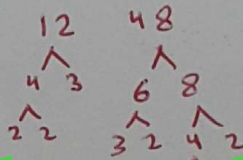 12 48
4 3 6 8
2 2 3 2 4 2